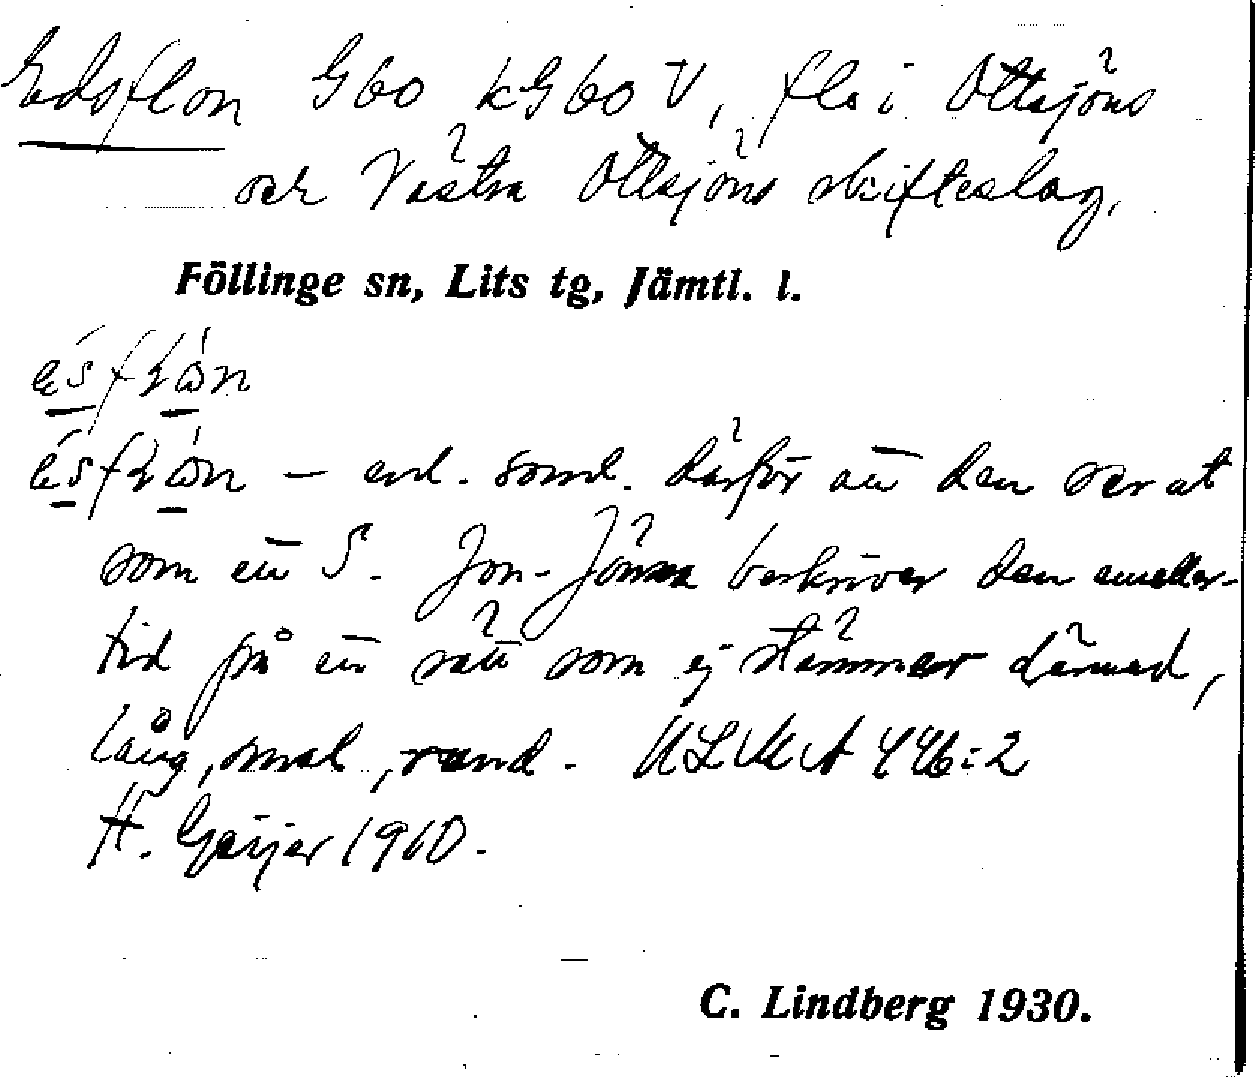 Edsflon G60 kG60 V, flo i Ottsjöns
och Västra Ottsjöns skifteslag.
Föllinge sn, Lits tg, Jämtl. l.
– enl. soml. därför att den ser ut
som ett S. Jon-Jönsa beskriver den emeller-
tid på ett sätt som ej stämmer därmed,
lång, smal, rund. ULMA 446:2
H. Geijer 1910.
C. Lindberg 1930.